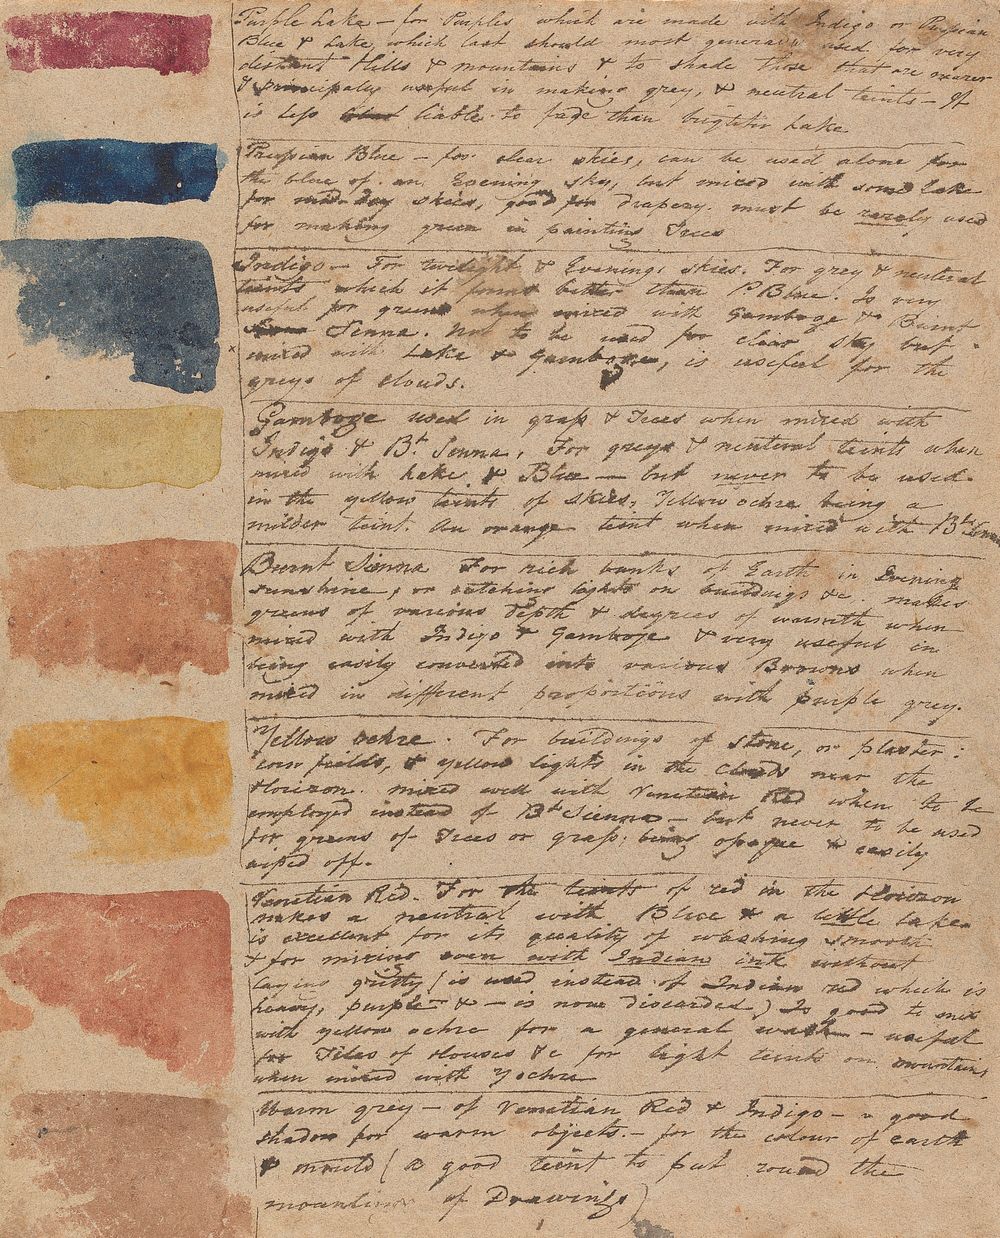 Purple Lake - for Purples which are made with Indigo or Prussian
Blue & Lake, which last should most generally used for very
distant Hills & mountains & to shade those that are nearer
& principally useful in making grey, & neutral teints - It
is less liable to fade than brighter Lake
Prussian Blue - for clear skies, can be used alone for
the blue of an Evening sky, but mixed with some Lake
for mid-day skies, good for drapery. must be rarely used
for making green in painting Trees
Indigo - For twilight & Evening skies. For grey & neutral
teints which it forms better than P. Blue. Is very
useful for greens when mixed with Gamboge & Burnt
Sienna. Not to be used for clear sky but
mixed with Lake & Gamboge, is useful for the
greys of clouds.
Gamboge used in grass & Trees when mixed with
Indigo & Bt Sienna. For greys & neuteral teints when
mixed with Lake & Blue - but never to be used
in the yellow teints of skies. Yellow ochre being a
milder teint. An orange teint when mixed with Bt Sienna
Burnt Sienna For rich banks of Earth in Evening
sunshine, or catching lights on buildings &c. makes
greens of various depth & degrees of warmth when
mixed with Indigo & Gamboge & very useful in
being easily converted into various Browns when
mixed in different proportions with purple grey.
Yellow ochre. For buildings of stone, or plaster:
corn fields, & yellow lights in the clouds near the
Horizon. mixed well with Venetian Red when to be
employed instead of Bt Sienna - but never to be used
for greens of Trees or grass; being opaque & easily
wiped off.
Venetian Red. For the teints of red in the Horizon
makes a neutral with Blue & a little Lake
is excellent for its quality of washing smooth
& for mixing even with Indian ink without
laying gritty (is used instead of Indian red which is
heavy, purple & - is now discarded) Is good to mix
with yellow ochre for a general wash - useful
for Tiles of Houses &c for light teints on mountains
when mixed with Y ochre
Warm grey - of Venetian Red & Indigo - a good
shadow for warm objects. - for the colour of earth
& mould (a good teint to put round the
mounting of Drawings)